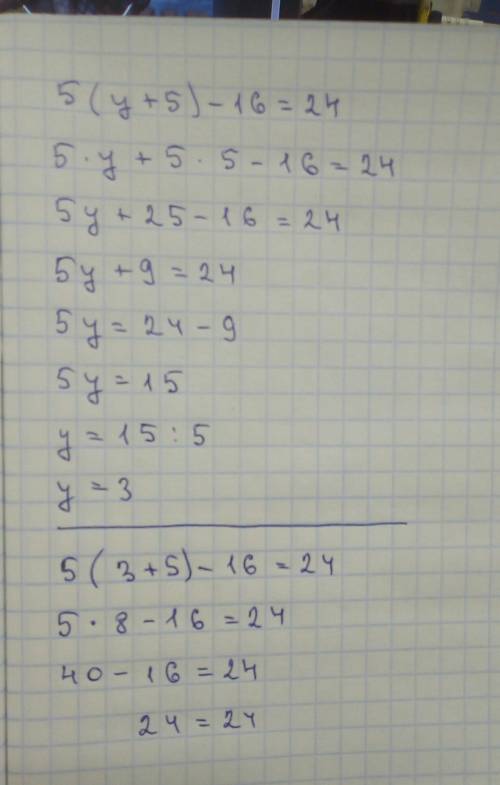 5(y+5)-16=24
5·y+5·5-16=24
5y+25-16=24
5y+9=24
5y=24-9
5y=15
y=15:5
y=3
5(3+5)-16=24
5·8-16=24
40-16=24
24=24